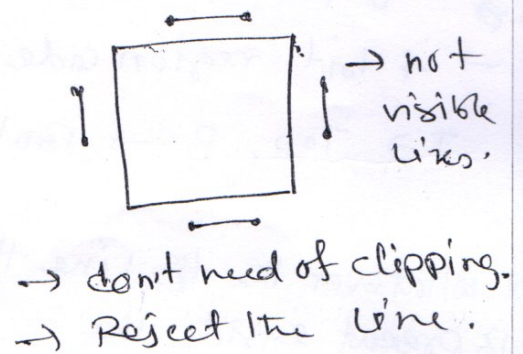 → not
visible
Lines.
→ don't need of clipping.
→ Reject the line.